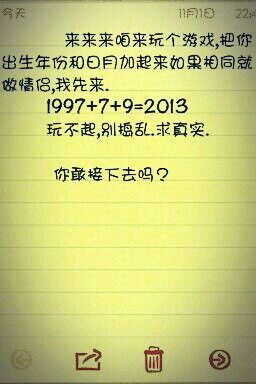 今天 11月1日 22:4
来来来咱来玩个游戏,把你
出生年份和日月加起来如果相同就
做情侣,我先来.
1997+7+9=2013
玩不起,别捣乱.求真实.
你敢接下去吗？